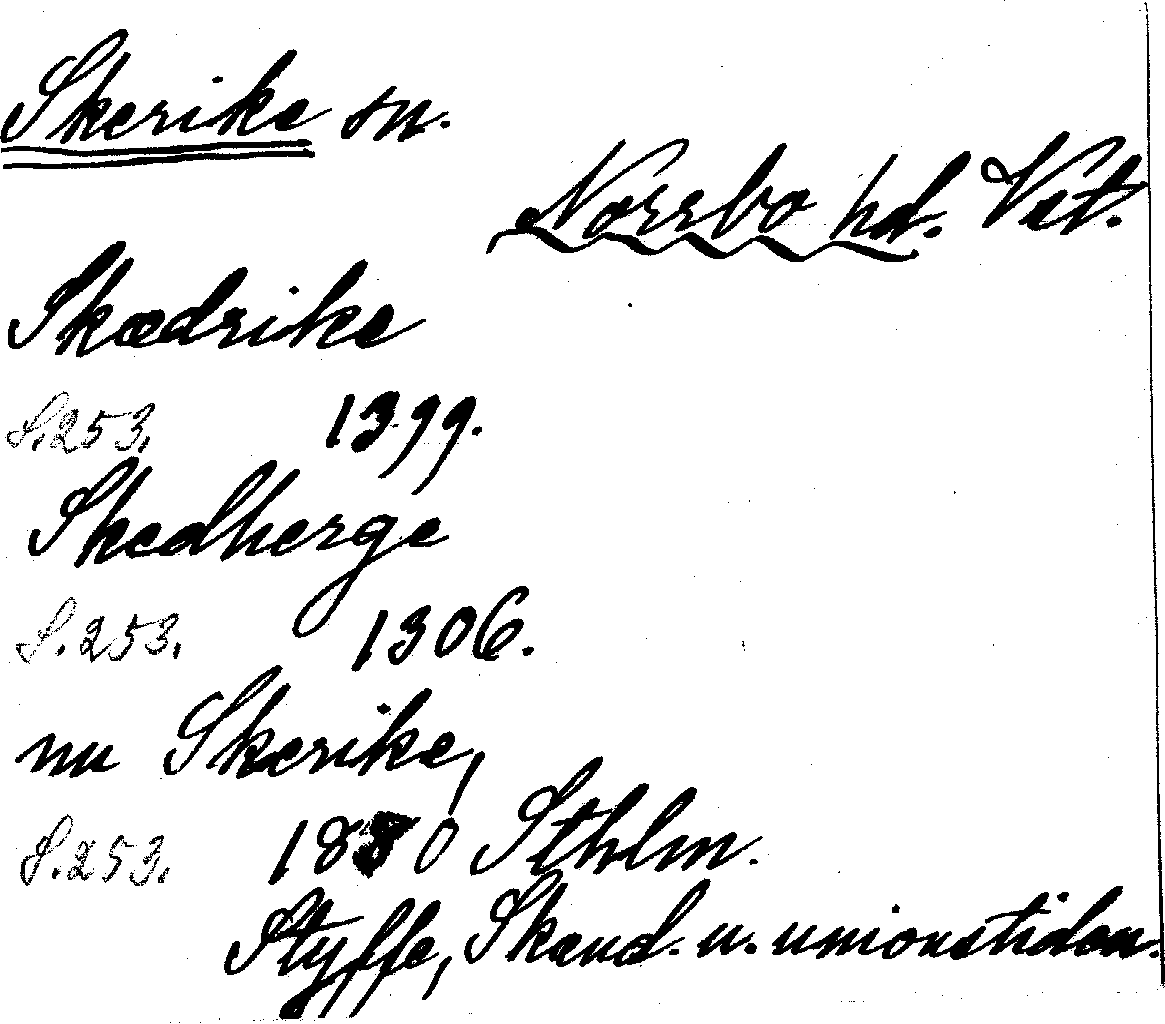 Skerike sn.
Norrbo hd. Vst.
Skædrike
S.253. 1399.
Skedherge
S.253. 1306.
nu Skerike,
S.253. 1880 Sthlm.
Styffe, Skand. u. unionstiden.